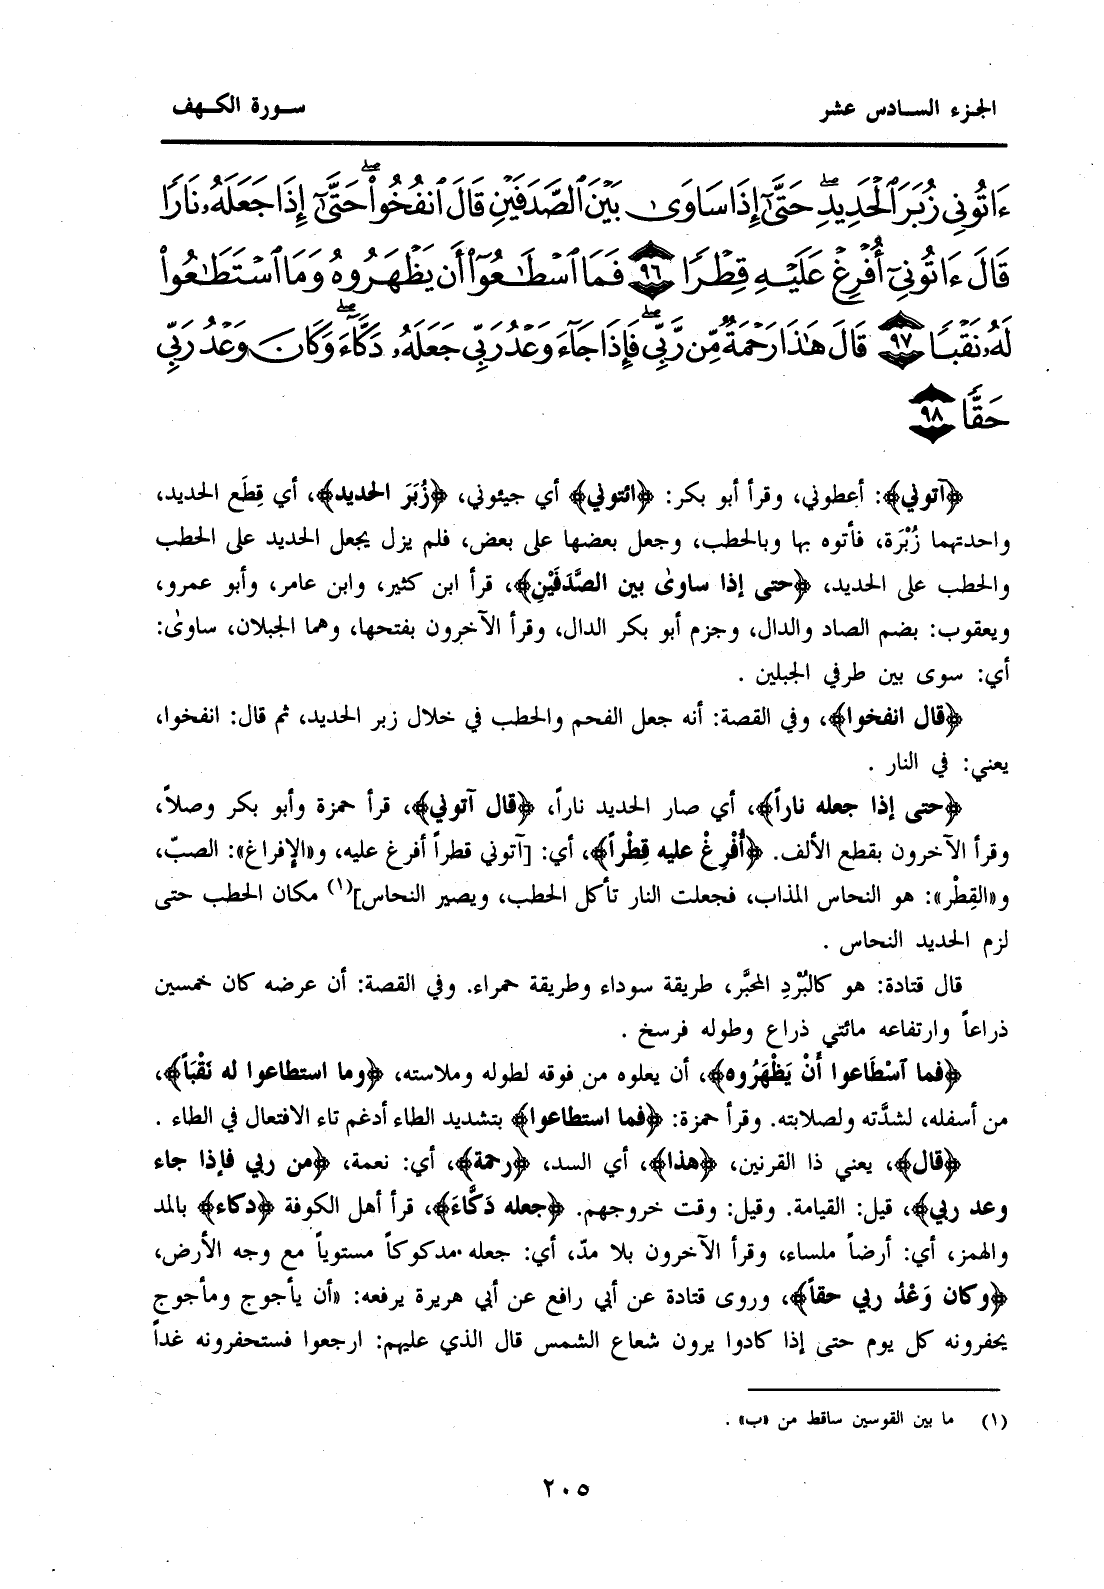 الجزء السادس عشر
سورة الكهف
ءَاتُونِي زُبَرَ ٱلْحَدِيدِ ۖ حَتَّىٰٓ إِذَا سَاوَىٰ بَيْنَ ٱلصَّدَفَيْنِ قَالَ ٱنفُخُوا۟ ۖ حَتَّىٰٓ إِذَا جَعَلَهُۥ نَارًا
قَالَ ءَاتُونِيٓ أُفْرِغْ عَلَيْهِ قِطْرًا ٩٦ فَمَا ٱسْطَٰعُوٓا۟ أَن يَظْهَرُوهُ وَمَا ٱسْتَطَٰعُوا۟
لَهُۥ نَقْبًا ٩٧ قَالَ هَٰذَا رَحْمَةٌ مِّن رَّبِّي ۖ فَإِذَا جَآءَ وَعْدُ رَبِّي جَعَلَهُۥ دَكَّآءَ ۖ وَكَانَ وَعْدُ رَبِّي
حَقًّا ٩٨
﴿آتوني﴾: أعطوني، وقرأ أبو بكر: ﴿ائتوني﴾ أي جيئوني، ﴿زُبَرَ الحديد﴾، أي قِطَع الحديد،
واحدتهما زُبْرَة، فأتوه بها وبالحطب، وجعل بعضها على بعض، فلم يزل يجعل الحديد على الحطب
والحطب على الحديد، ﴿حتى إذا ساوىٰ بين الصَّدَفَيْنِ﴾، قرأ ابن كثير، وابن عامر، وأبو عمرو،
ويعقوب: بضم الصاد والدال، وجزم أبو بكر الدال، وقرأ الآخرون بفتحها، وهما الجبلان، ساوىٰ:
أي: سوى بين طرفي الجبلين .
﴿قال انفخوا﴾، وفي القصة: أنه جعل الفحم والحطب في خلال زبر الحديد، ثم قال: انفخوا،
يعني: في النار .
﴿حتى إذا جعله ناراً﴾، أي صار الحديد ناراً، ﴿قال آتوني﴾، قرأ حمزة وأبو بكر وصلاً،
وقرأ الآخرون بقطع الألف. ﴿أُفْرِغْ عليه قِطْراً﴾، أي: [آتوني قطراً أفرغ عليه، و«الإفراغ»: الصبّ،
و«القِطْر»: هو النحاس المذاب، فجعلت النار تأكل الحطب، ويصير النحاس](١) مكان الحطب حتى
لزم الحديد النحاس .
قال قتادة: هو كالبُرْدِ المحبَّر، طريقة سوداء وطريقة حمراء. وفي القصة: أن عرضه كان خمسين
ذراعاً وارتفاعه مائتي ذراع وطوله فرسخ .
﴿فما آسْطَاعوا أَنْ يَظْهَرُوه﴾، أن يعلوه من فوقه لطوله وملاسته، ﴿وما استطاعوا له نَقْبَاً﴾،
من أسفله، لشدَّته ولصلابته. وقرأ حمزة: ﴿فما استطاعوا﴾ بتشديد الطاء أدغم تاء الافتعال في الطاء .
﴿قال﴾، يعني ذا القرنين، ﴿هذا﴾، أي السد، ﴿رحمة﴾، أي: نعمة، ﴿من ربي فإذا جاء
وعد ربي﴾، قيل: القيامة. وقيل: وقت خروجهم. ﴿جعله دَكَّاءَ﴾، قرأ أهل الكوفة ﴿دكاء﴾ بالمد
والهمز، أي: أرضاً ملساء، وقرأ الآخرون بلا مدّ، أي: جعله مدكوكاً مستوياً مع وجه الأرض،
﴿وكان وَعْدُ ربي حقاً﴾، وروى قتادة عن أبي رافع عن أبي هريرة يرفعه: «أن يأجوج ومأجوج
يحفرونه كل يوم حتى إذا كادوا يرون شعاع الشمس قال الذي عليهم: ارجعوا فستحفرونه غداً
(١) ما بين القوسين ساقط من «ب» .
٢٠٥